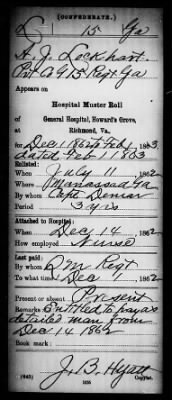 (CONFEDERATE.)
L 15 Ga
A. J. Lockhart.
Pvt Co G 15 Regt Ga
Appears on
Hospital Muster Roll
of
General Hospital, Howard's Grove,
at
Richmond, Va.,
for Dec 1 1862 to Feb 1, 1863
dated Feb 11 1863
Enlisted:
When July 11, 1862
Where Manassas
By whom Capt
Period 3 yrs
Attached to Hospital:
When Dec 14, 1862
How employed Nurse
Last paid:
By whom Q M Regt
To what time Dec 1, 1862
Present or absent Present
Remarks: Entitled to pay as
detailed man from
Dec 14 1862
Book mark:
J. B. Hyatt
(645) Copyist.